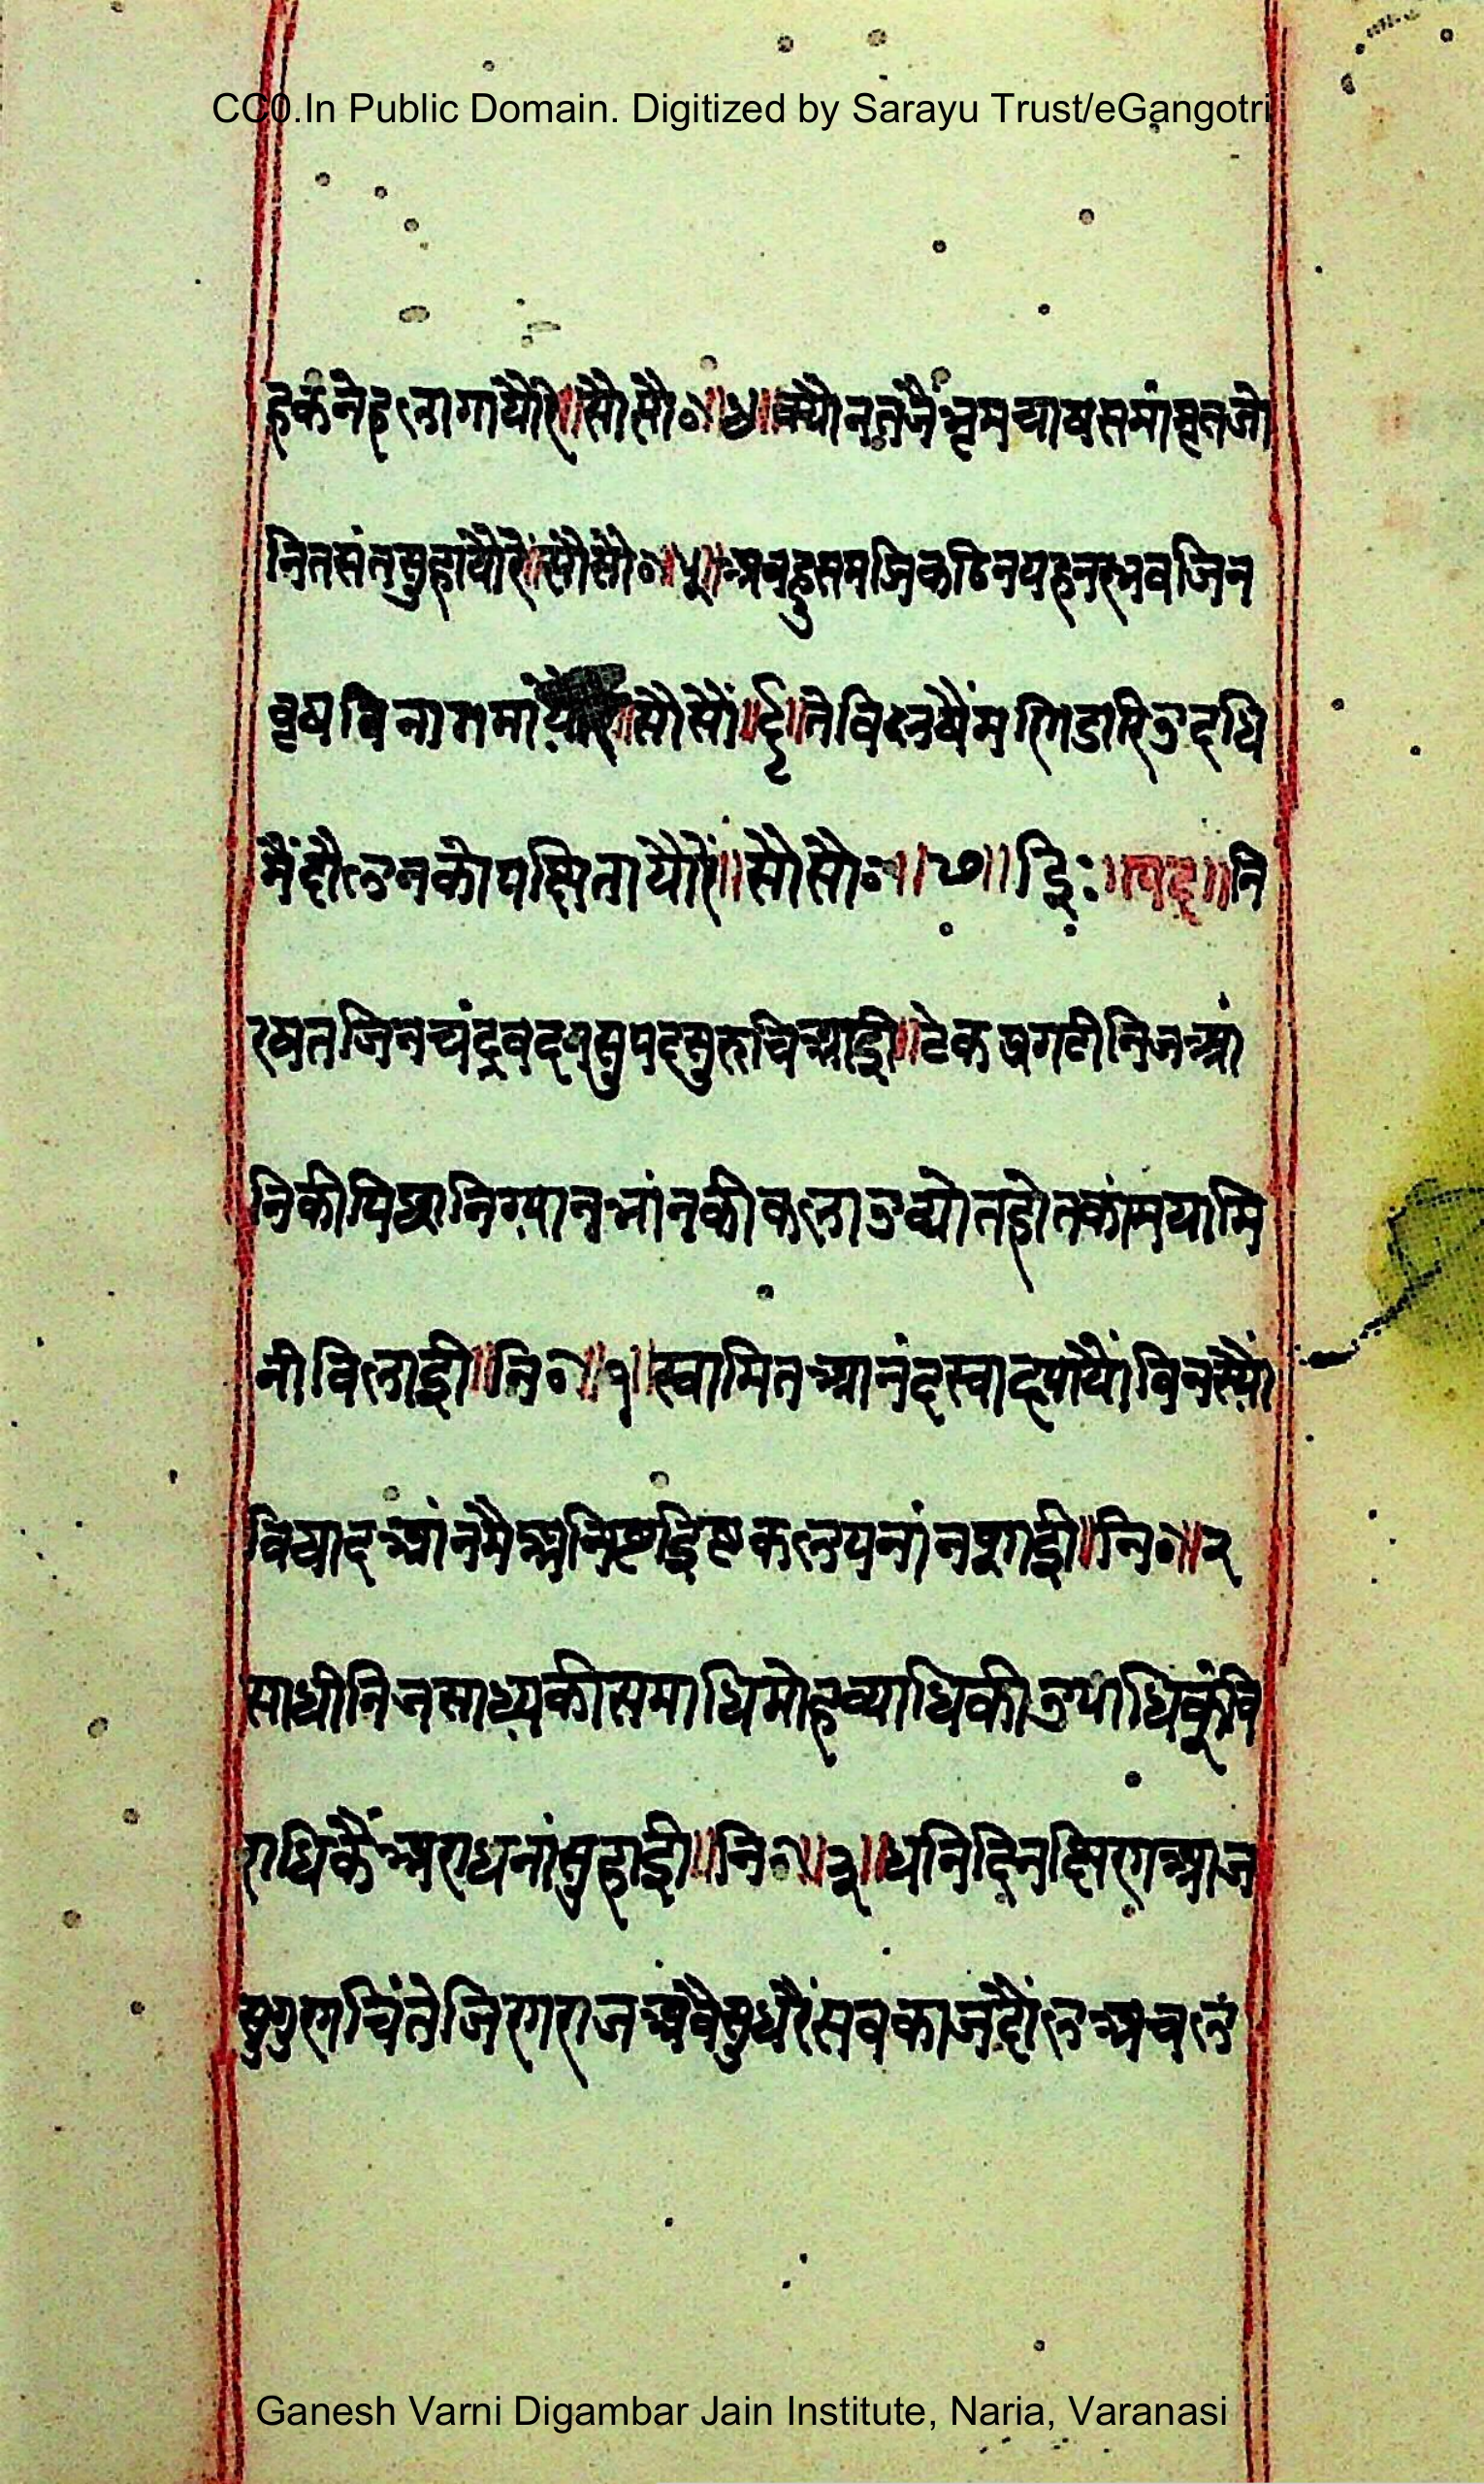 CC0.In Public Domain. Digitized by Sarayu Trust/eGangotri
हकनेहलागायौरे॥सौसौ०॥४॥क्यौनतजैभ्रमचाषसमांमृतजो
नितसंतसुहायौरे॥सौसौ०॥५॥अबहुसमजिकठिनयहनरभवजिन
वृषबिनागमायौरे॥सौसौं॥६॥तेविलषैंमणिडारिउदधि
मैंदौलनकोपछितायौरें॥सौसौ०॥७॥ इि:॥पद॥नि
रषतजिनचंद्रवदनसुपदसुरुचिआई॥टेकप्रगटीनिजआं
निकीपिछानिग्यानभांनकीकलाउद्योतहोतकांमयामि
नीविलाई॥नि०॥१॥स्वामितआनंदस्वादपायौंविनस्यौं
विषादआंनमैंअनिष्टइिष्टकलपनांनशाई॥नि०॥२
साधीनिजसाध्यकीसमाधिमोहव्याधिकीउपाधिकूंवि
राधिकैंअराधनांसुहाई॥नि०॥३॥धनिदिनछिरगआज
सुगुरगचिंतेजिरगराजअबैसुधरैंसबकाजदौंलअचल
Ganesh Varni Digambar Jain Institute, Naria, Varanasi